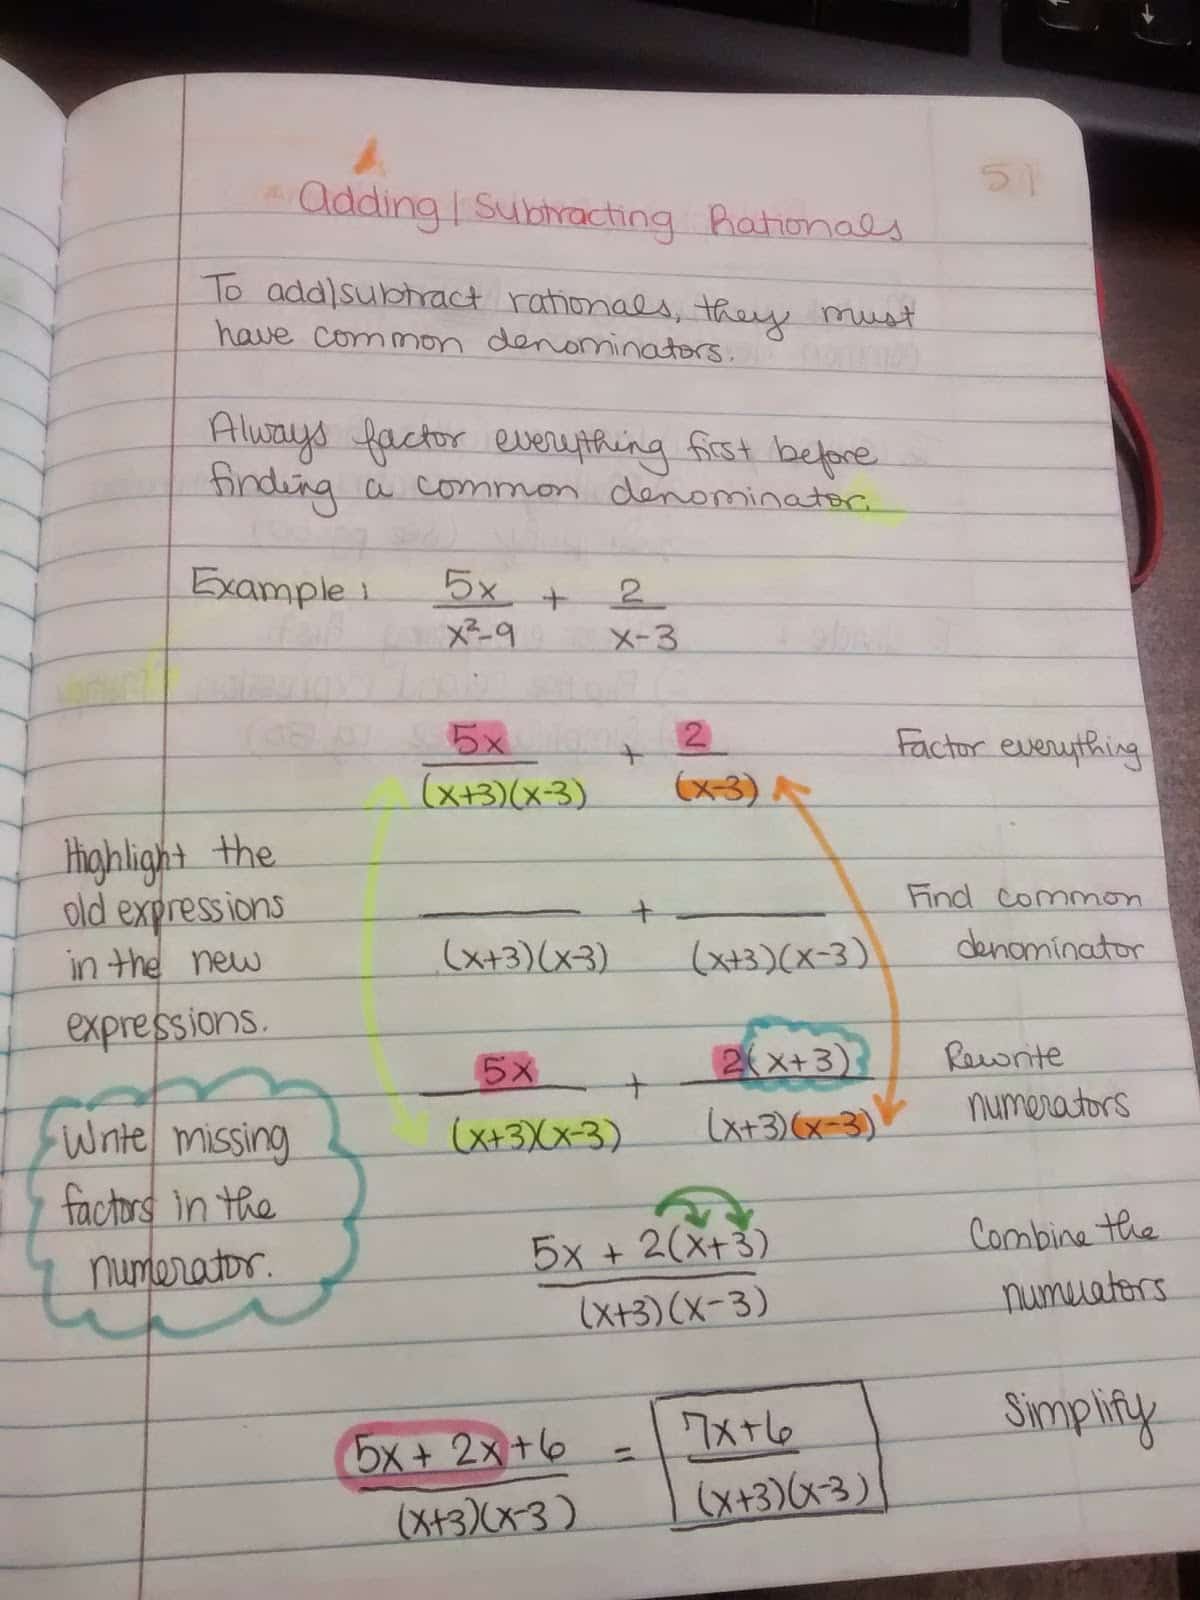 51
Adding/Subtracting Rationals
To add/subtract rationals, they must
have common denominators.
Always factor everything first before
finding a common denominator.
Example: 5x/x²-9 + 2/x-3
5x/(x+3)(x-3) + 2/(x-3) Factor everything
Highlight the
old expressions
in the new
expressions.
___/(x+3)(x-3) + ___/(x+3)(x-3) Find common
denominator
5x/(x+3)(x-3) + 2(x+3)/(x+3)(x-3) Rewrite
numerators
Write missing
factors in the
numerator.
5x + 2(x+3)/(x+3)(x-3) Combine the
numerators
5x + 2x+6/(x+3)(x-3) = 7x+6/(x+3)(x-3) Simplify